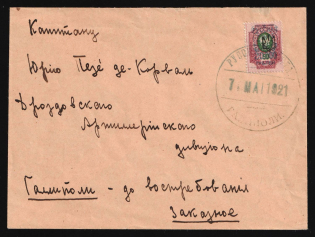 Капитану
Юрiю Пезе де-Корваль
Дроздовскаго
Артиллерiйскаго
дивизiона
Галлиполи - до востребованiя
Заказное
7. МАI 1921